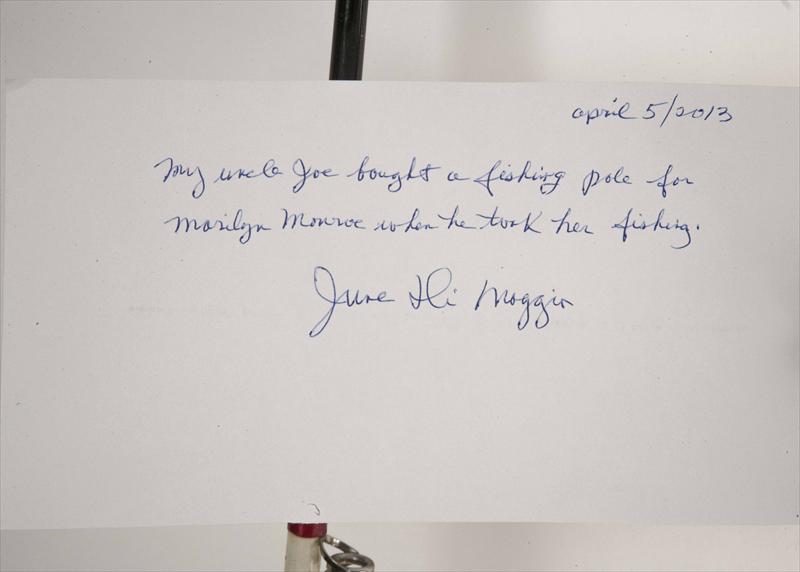 april 5/2013
My uncle Joe bought a fishing pole for
Marilyn Monroe when he took her fishing.
June Di Maggio